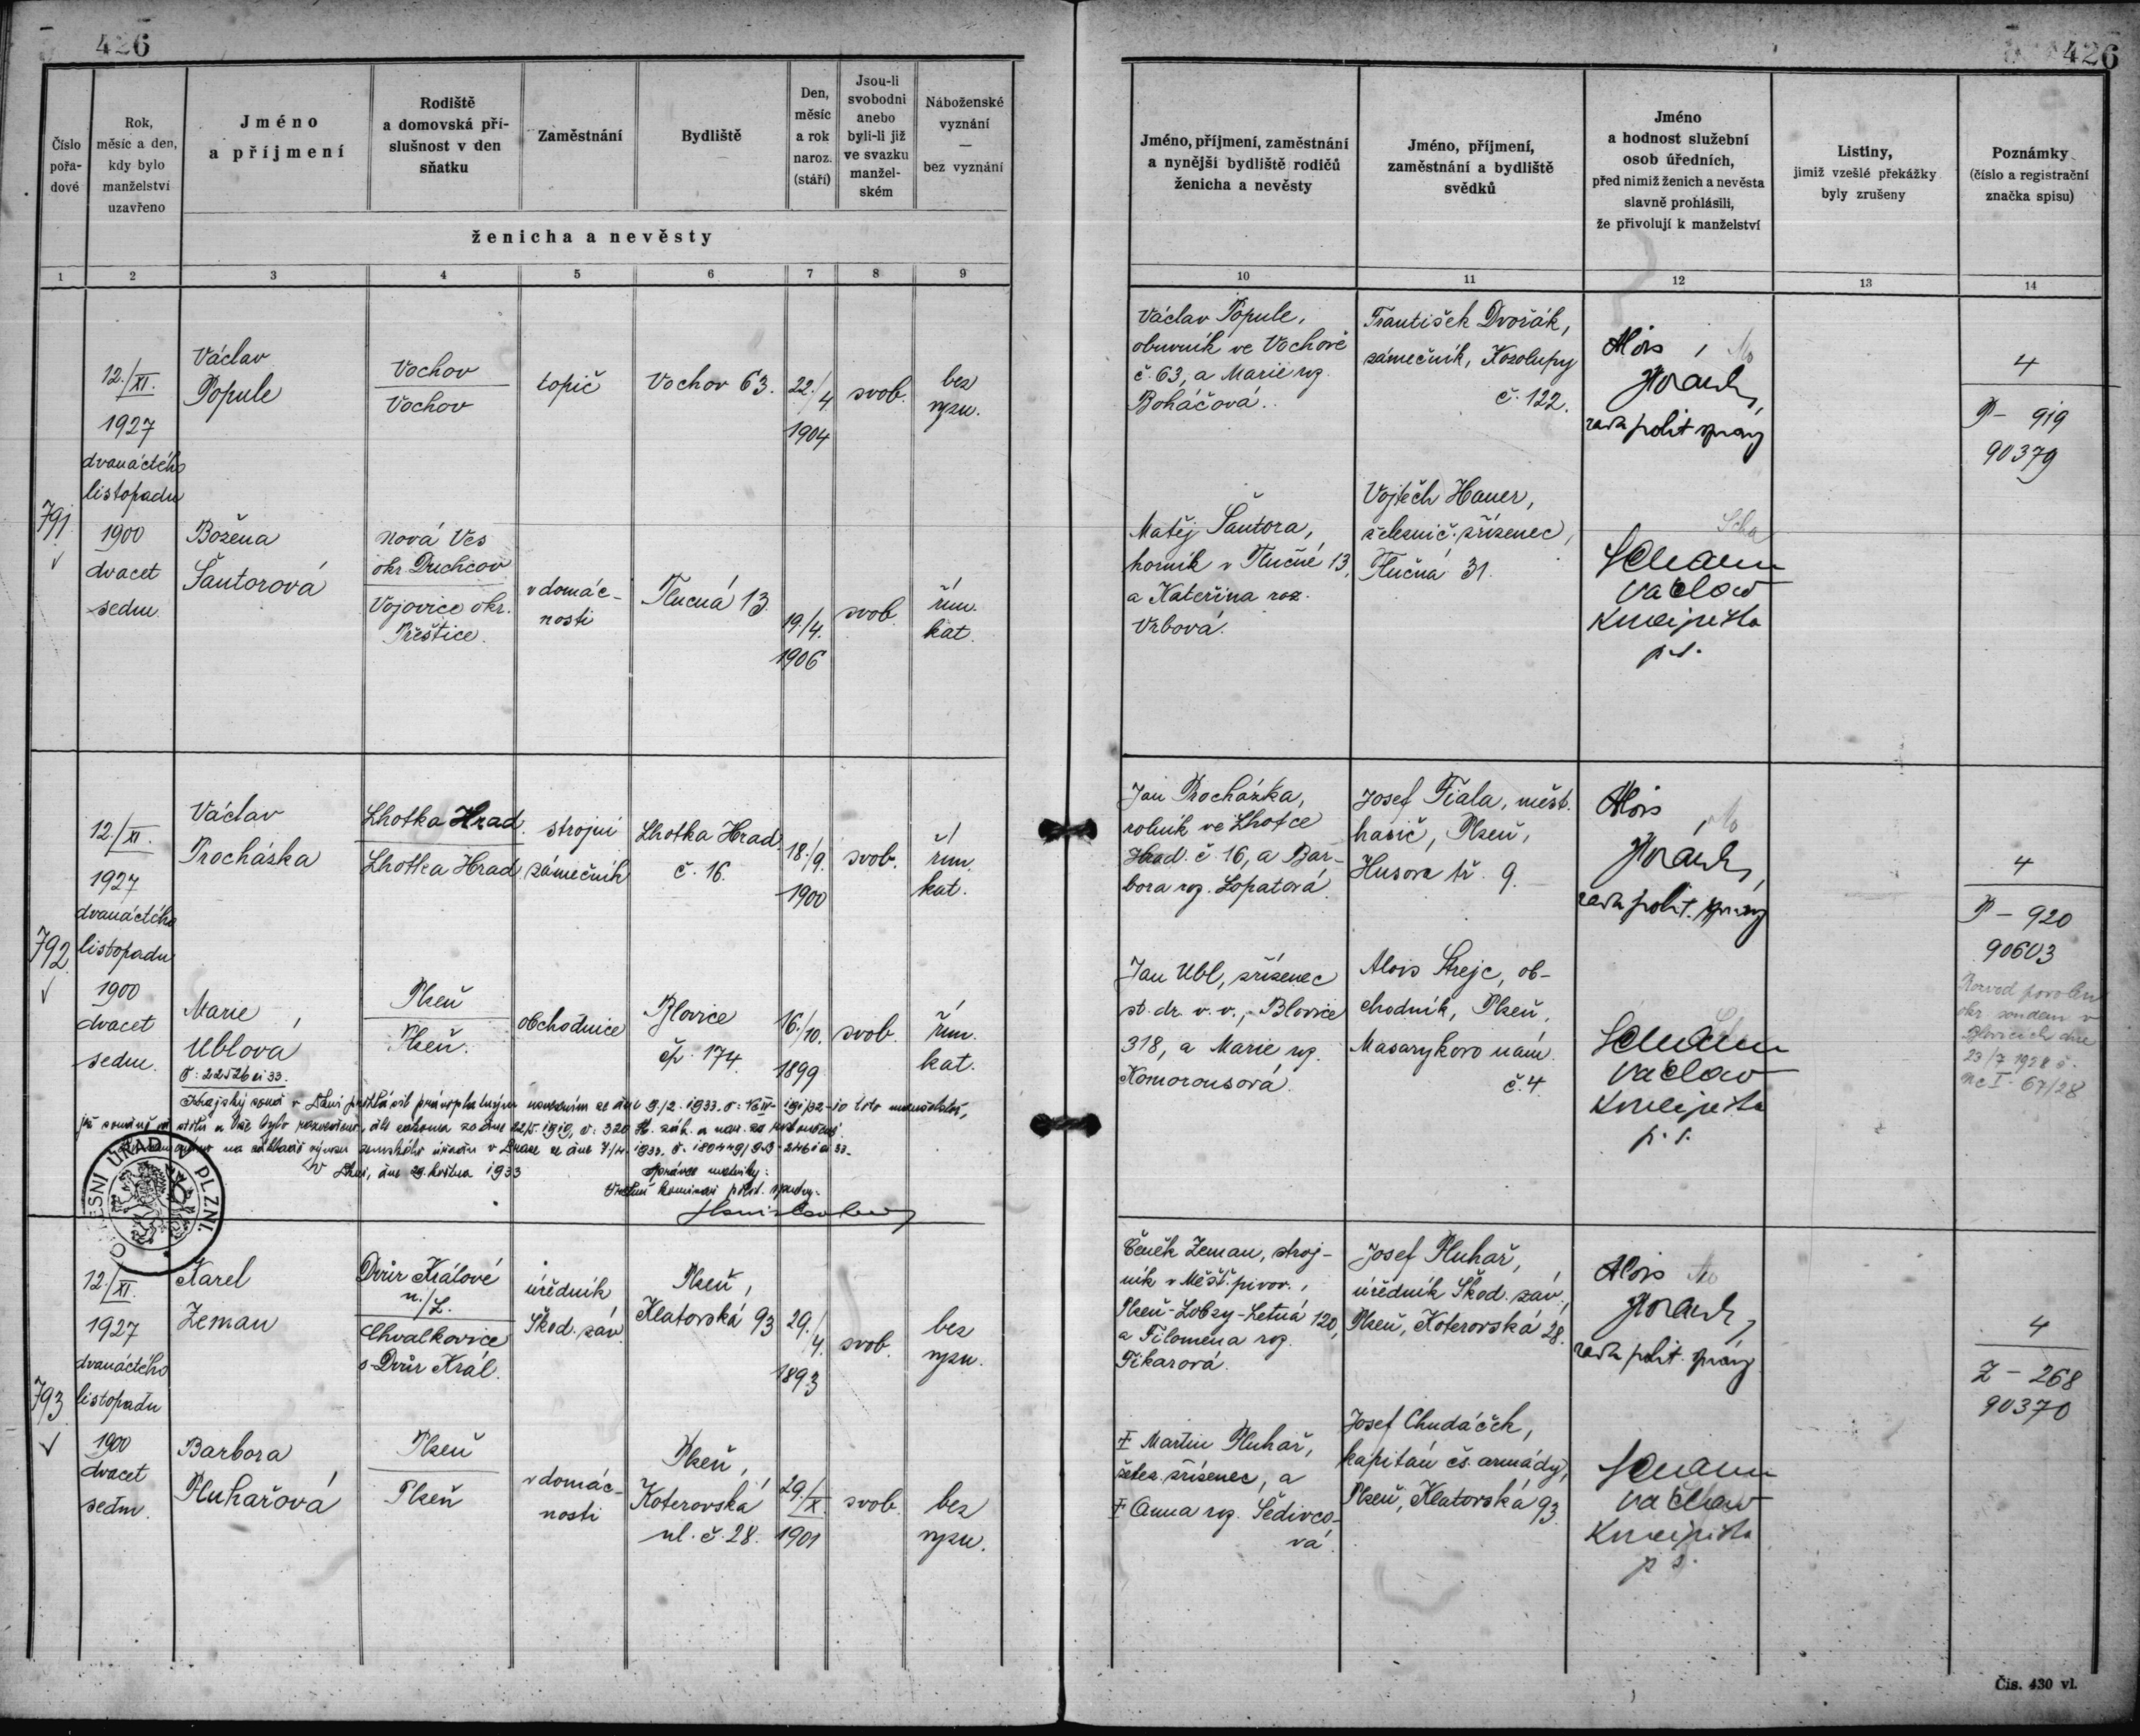 426
426
Číslo pořa-dové
Rok, měsíc a den, kdy bylo manželství uzavřeno
Jméno a příjmení
Rodiště a domovská pří-slušnost v den sňatku
Zaměstnání
Bydliště
Den, měsíc a rok naroz. (stáří)
Jsou-li svobodni anebo byli-li již ve svazku manžel-ském
Náboženské vyznání — bez vyznání
ženicha a nevěsty
Jméno, příjmení, zaměstnání a nynější bydliště rodičů ženicha a nevěsty
Jméno, příjmení, zaměstnání a bydliště svědků
Jméno a hodnost služební osob úředních, před nimiž ženich a nevěsta slavně prohlásili, že přivolují k manželství
Listiny, jimiž vzešlé překážky byly zrušeny
Poznámky (číslo a registrační značka spisu)
1 2 3 4 5 6 7 8 9
10 11 12 13 14
791
12./XI.
1927
dvanáctého
listopadu
1900
dvacet
sedm.
Václav
Popule
Vochov
Vochov
topič
Vochov 63.
22./4.
1904
svob.
bez
vyzn.
Božena
Šantorová
Nová Ves
okr. Duchcov
Vojovice okr.
Přeštice.
v domác-
nosti
Tlucná 13.
19./4.
1906
svob.
řím.
kat.
Václav Popule,
obuvník ve Vochově
č. 63, a Marie roz.
Boháčová.
František Dvořák,
zámečník, Kozolupy
č. 122.
Alois
rada polit. správy
4
P - 919
90379
Matěj Šantora,
horník v Tlučné 13,
a Kateřina roz.
Vrbová.
Vojtěch Hauer,
železnič. zřízenec,
Tlučná 31.
Václav
p. s.
792
12./XI.
1927
dvanáctého
listopadu
1900
dvacet
sedm.
Václav
Procházka
Lhotka Hrad.
Lhotka Hrad
strojní
zámečník
Lhotka Hrad.
č. 16.
18./9.
1900
svob.
řím.
kat.
Marie
Ublová
Plzeň
Plzeň.
obchodnice
Blovice
čp. 174.
16./10.
1899
svob.
řím.
kat.
Jan Procházka,
rolník ve Lhotce
Hrad. č. 16, a Bar-
bora roz. Lopatová.
Josef Fiala, měst.
hasič, Plzeň,
Husova tř. 9.
Alois
rada polit. správy
4
P - 920
90603
Rozvod povolen
okr. soudem v
Blovicích dne
23/7 1928 č.
Nc I - 67/28
Jan Ubl, zřízenec
st. dr. v. v., Blovice
318, a Marie roz.
Komorousová.
Alois Strejc, ob-
chodník, Plzeň,
Masarykovo nám.
č. 4.
Václav
p. s.
V Plzni, dne 29. května 1933
Správce matriky:
OKRESNÍ ÚŘAD V PLZNI.
793
12./XI.
1927
dvanáctého
listopadu
1900
dvacet
sedm.
Karel
Zeman
Dvůr Králové
n./L.
Chvalkovice
o. Dvůr Král.
úředník
Škod. záv.
Plzeň,
Klatovská 93
29./4.
1893
svob.
bez
vyzn.
Barbora
Pluhařová
Plzeň
Plzeň
v domác-
nosti
Plzeň,
Koterovská
ul. č. 28.
29./X.
1901
svob.
bez
vyzn.
Čeněk Zeman, stroj-
ník v Měšť. pivov.,
Plzeň-Lobzy-Letná 120,
a Filomena roz.
Fikarová.
Josef Pluhař,
úředník Škod. záv.,
Plzeň, Koterovská 28.
Alois
rada polit. správy
4
Z - 268
90370
† Martin Pluhař,
želez. zřízenec, a
† Anna roz. Šedivco-
vá.
Josef Chudáček,
kapitán čs. armády,
Plzeň, Klatovská 93.
Václav
p. s.
Čis. 430 vl.